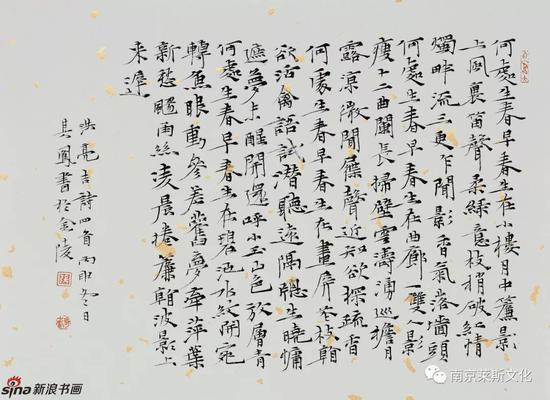 何處生春早春生在小樓月中簾影
上風裏笛聲柔綠意枝梢破紅情
燭畔流三更乍聞影香氣落墻頭
何處生春早春生在曲廊一雙影
瘦十二曲闌長掃壁雲濤湧巡擔月
露涼微聞屧聲近知欲探疏香
何處生春早春生在畫屏枝翰
欲活禽語試潛聽遠隔生曉慵
遮夢未醒開還呼小玉山色放層青
何處生春早春生在碧池水紋開宛
轉魚眼動參差舊夢牽萍葉
新愁颺雨絲凌晨捲簾翰波影上
來遲
洪亮吉詩四首丙申冬日
其鳳書於金陵
sina新浪书画
南京莱斯文化